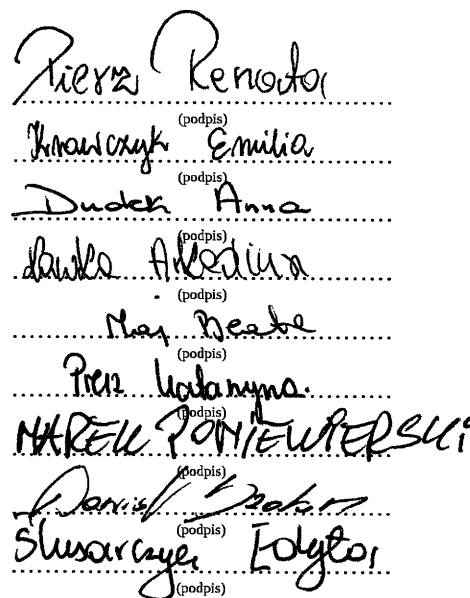 Pierz Renata
(podpis)
Krawczyk Emilia
(podpis)
Dudek Anna
(podpis)
Ławka Arkadiusz
(podpis)
Maj Beata
(podpis)
Pierz Katarzyna
(podpis)
MAREK PONIEWIERSKI
(podpis)
Daniel
(podpis)
Ślusarczyk Edyta
(podpis)